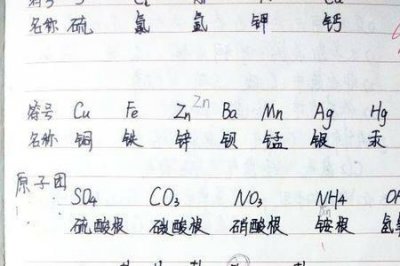 符号 S Cl K Ca
名称 硫 氯 氩 钾 钙
符号 Cu Fe Zn Zn Ba Mn Ag Hg
名称 铜 铁 锌 钡 锰 银 汞
原子团
SO4 CO3 NO3 NH4 OH
硫酸根 碳酸根 硝酸根 铵根 氢